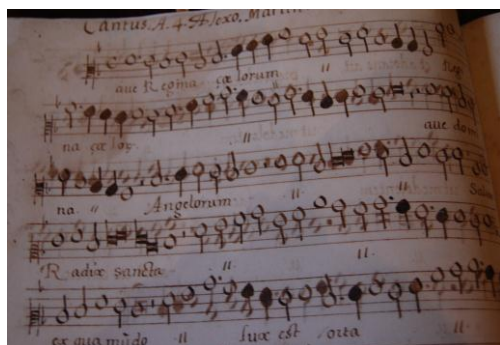 Cantus. A. 4. Alexo. Martin
aue Regina cælorum ii Reg
na cæ loȝ ii aue dom
na ii Angelorum ii ii Salue
Radix sancta ii ii
ex qua mūdo ii lux est orta ii